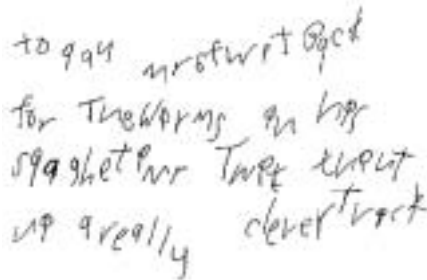 to gay mrstwit Back
for TheWorms in his
spaghetti mr Twit thout
up a really clever Trick